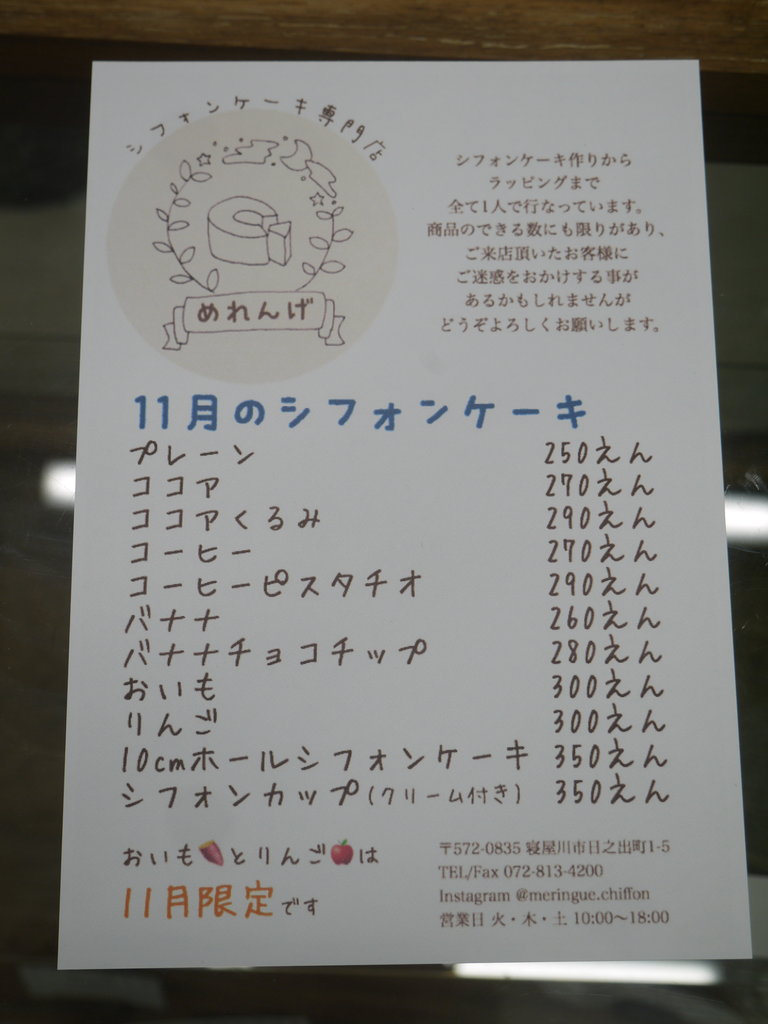 シフォンケーキ専門店
めれんげ
シフォンケーキ作りから
ラッピングまで
全て1人で行なっています。
商品のできる数にも限りがあり、
ご来店頂いたお客様に
ご迷惑をおかけする事が
あるかもしれませんが
どうぞよろしくお願いします。
11月のシフォンケーキ
プレーン 250えん
ココア 270えん
ココアくるみ 290えん
コーヒー 270えん
コーヒーピスタチオ 290えん
バナナ 260えん
バナナチョコチップ 280えん
おいも 300えん
りんご 300えん
10cmホールシフォンケーキ 350えん
シフォンカップ(クリーム付き) 350えん
おいも🍠とりんご🍎は
11月限定です
〒572-0835 寝屋川市日之出町1-5
TEL/Fax 072-813-4200
Instagram @meringue.chiffon
営業日 火・木・土 10:00〜18:00